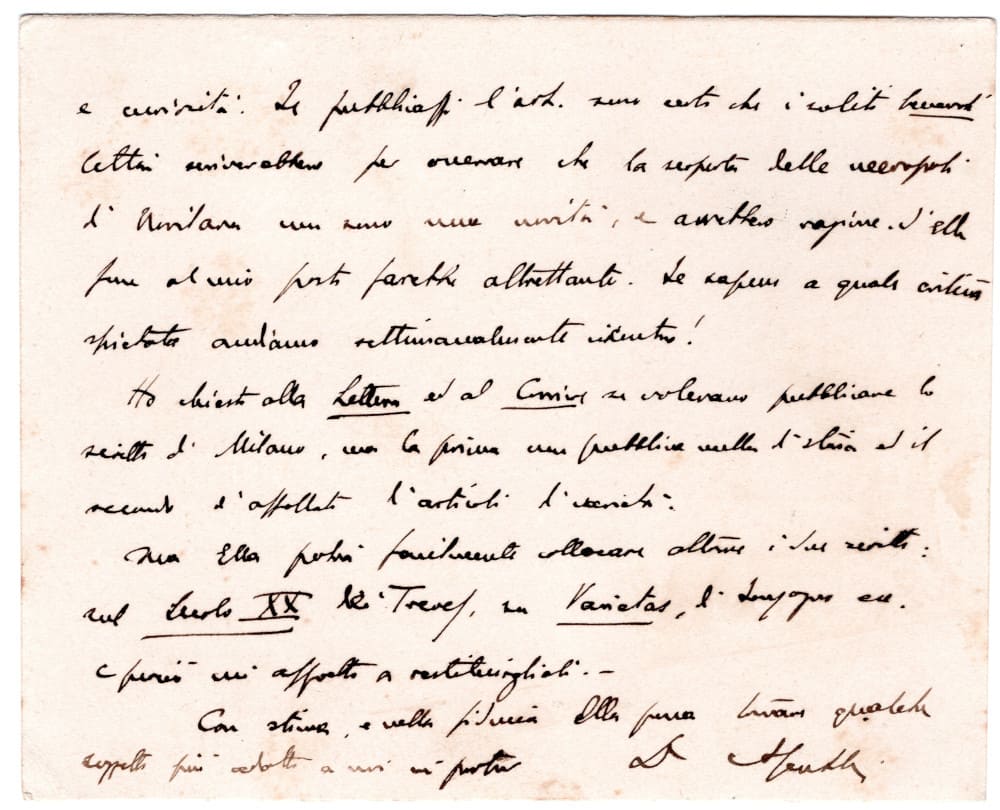 e curiosità. Se pubblicassi l'art. sono certo che i soliti benevoli
lettori scriverebbero per osservare che la scoperta delle necropoli
di Novilara non sono una novità, e avrebbero ragione. Ed Ella
fose al mio posto farebbe altrettanto. Se sapesse a quale critica
spietata andiamo settimanalmente incontro!
Ho chiesto alla Lettura ed al Corriere se volevano pubblicare lo
scritto di Milano, ma la prima non pubblica nulla di storia ed il
secondo è affollato d'articoli di varietà.
Ma Ella potrà facilmente collocare altrove i due scritti:
sul Secolo XX dei Treves, su Varietas, di Sonzogno ecc.
e perciò mi affretto a restituirglieli. —
Con stima, e nella fiducia Ella possa trovare qualche
soggetto più adatto a noi mi